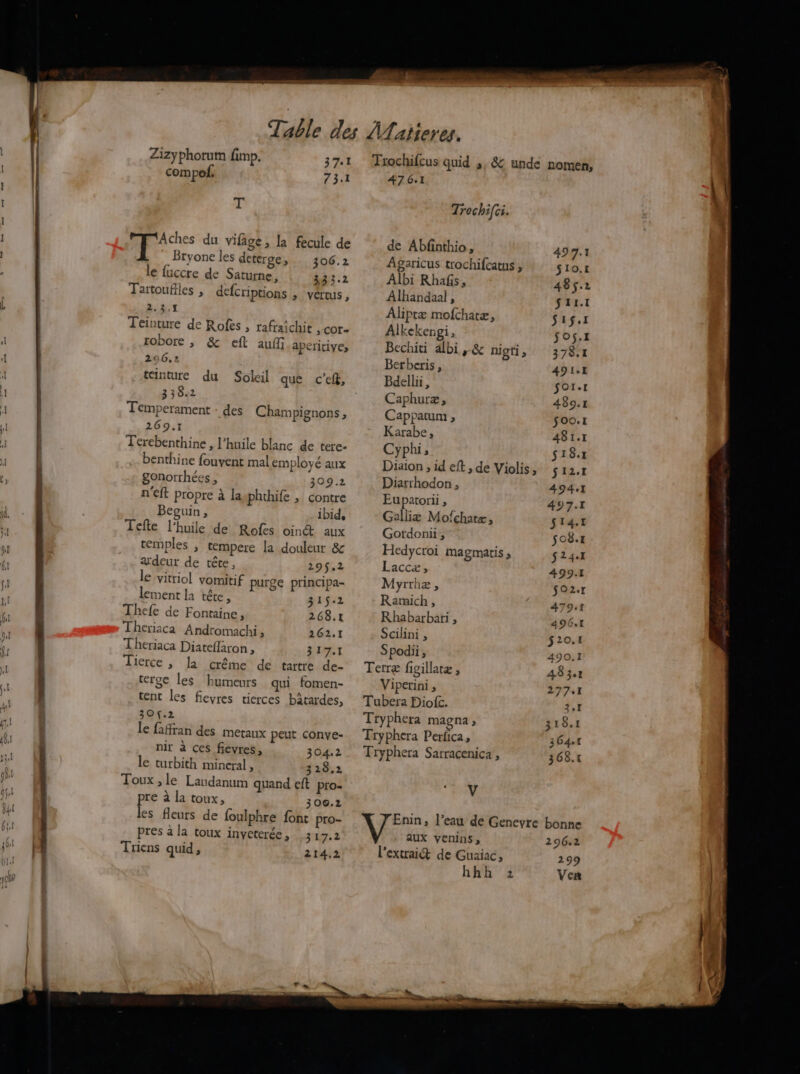 Table des Matieres.
Zizyphorum ſimp. 37.1
compoſ. 73.1
T
TAches du viſage, la fecule de
Bryone les deterge, 306.2
le ſuccre de Saturne, 333.2
Tartouffles, deſcriptions, vertus,
2.3.1
Teinture de Roſes, rafraichit, cor-
robore, & eſt auſſi aperitive,
296.2
teinture du Soleil que c'eſt,
338.2
Temperament des Champignons,
269.1
Terebenthine, l'huile blanc de tere-
benthine ſouvent mal employé aux
gonorrhées, 309.2
n'eſt propre à la phthiſe, contre
Beguin, ibid.
Teſte l'huile de Roſes oinct aux
temples, tempere la douleur &
ardeur de tête, 295.2
le vitriol vomitif purge principa-
lement la tête, 315.2
Theſe de Fontaine, 268.1
Theriaca Andromachi, 262.1
Theriaca Diateſſaron, 317.1
Tierce, la crême de tartre de-
terge les humeurs qui fomen-
tent les fievres tierces bâtardes,
305.2
le ſaffran des metaux peut conve-
nir à ces fievres, 304.2
le turbith mineral, 328.2
Toux, le Laudanum quand eſt pro-
pre à la toux, 300.2
les fleurs de ſoulphre font pro-
pres à la toux inveterée, 317.2
Triens quid, 214.2
Trochiſcus quid, & unde nomen,
476.1
Trochiſci.
de Abſinthio, 497.1
Agaricus trochiſcatus, 510.1
Albi Rhaſis, 485.2
Alhandaal, 511.1
Aliptæ moſchatæ, 515.1
Alkekengi, 505.1
Bechiti albi, & nigri, 378.1
Berberis, 491.1
Bdellii, 501.1
Caphuræ, 489.1
Capparum, 500.1
Karabe, 481.1
Cyphi, 518.1
Diaion, id eſt, de Violis, 512.1
Diarrhodon, 494.1
Eupatorii, 497.1
Galliæ Moſchatæ, 514.1
Gordonii, 508.1
Hedycroi magmatis, 524.1
Laccæ, 499.1
Myrrhæ, 502.1
Ramich, 479.1
Rhabarbari, 496.1
Scilini, 520.1
Spodii, 490.1
Terræ ſigillatæ, 483.1
Viperini, 277.1
Tubera Dioſc. 3.1
Tryphera magna, 318.1
Tryphera Perſica, 364.1
Tryphera Sarracenica, 368.1
V
VEnin, l'eau de Genevre bonne
aux venins, 296.2
l'extraict de Guaiac, 299
hhh 2 Ven